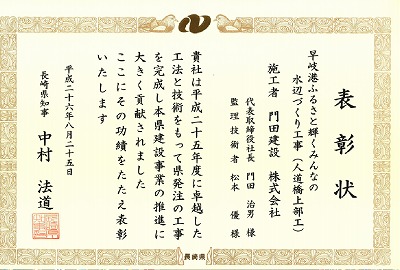 表彰状
早岐港ふるさと輝くみんなの
水辺づくり工事（人道橋上部工）
施工者 門田建設 株式会社
代表取締役社長 門田 治男 様
監理技術者 松本 優 様
貴社は平成二十五年度に卓越した
工法と技術をもって県発注の工事
を完成し本県建設事業の推進に
大きく貢献されました
ここにその功績をたたえ表彰
いたします
平成二十六年八月二十五日
長崎県知事 中村 法道
長崎県